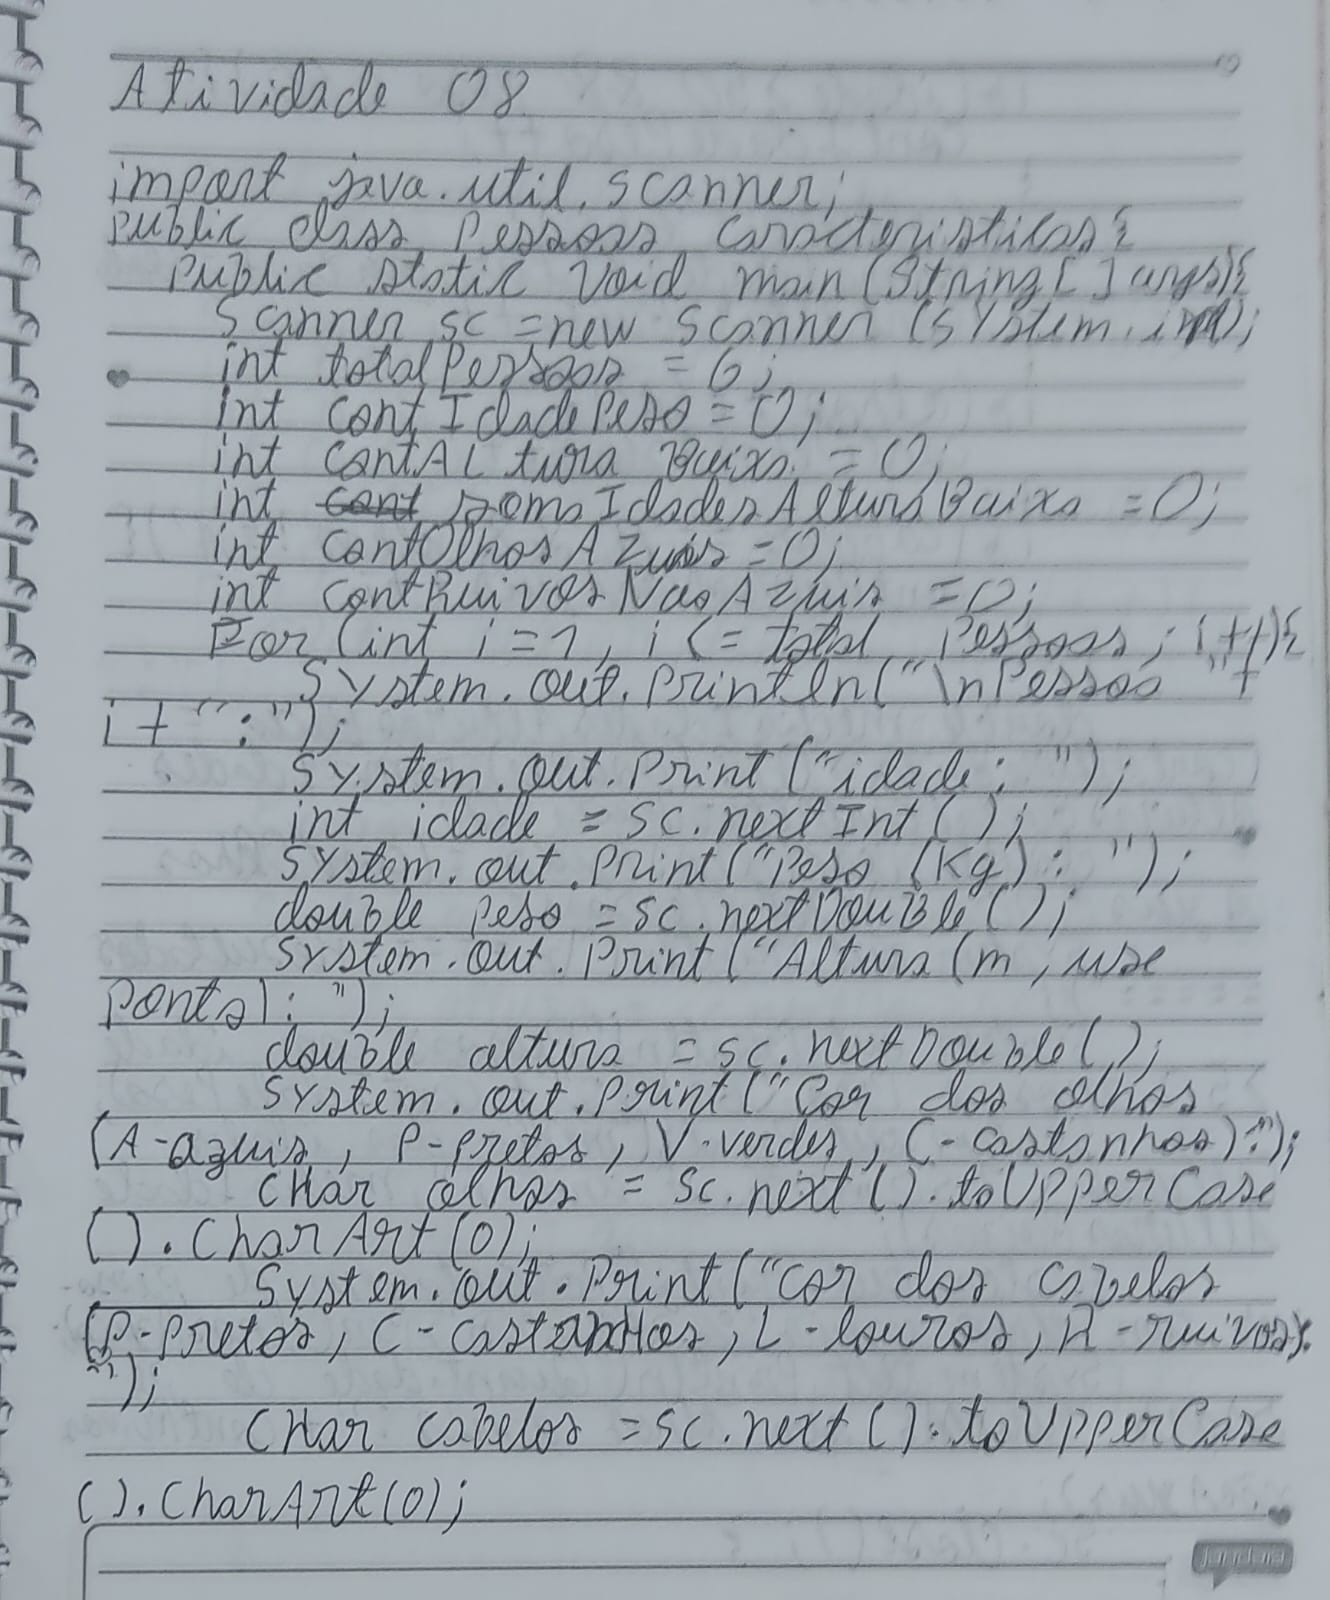 Atividade 08
import java.util.scanner;
public class Pessoas Caracteristicas{
public static void main (String[] args){
Scanner sc = new Scanner (System.in);
int totalPessoas = 6;
int contIdadePeso = 0;
int contAltura Baixa = 0;
int somaIdadesAlturaBaixa = 0;
int contOlhosAzuis = 0;
int contRuivosNaoAzuis = 0;
For (int i = 1, i <= total Pessoas; i++){
System.out.println("\nPessoa "+
i + ":");
System.out.Print ("idade: ");
int idade = sc.nextInt();
System.out.Print("Peso (Kg): ");
double peso = sc.nextDouble();
System.out.Print ("Altura (m, use
ponto): ");
double altura = sc.nextDouble();
System.out.Print ("Cor dos olhos
(A-azuis, P-pretos, V-verdes, C-castanhos):");
CHar olhos = sc.next().toUpperCase
().CharArt(0);
System.out.Print ("Cor dos cabelos
(P-Pretos, C-castanHos, L-louros, R-ruivos):
");
CHar cabelos = sc.next().toUpperCase
().CharArt(0);